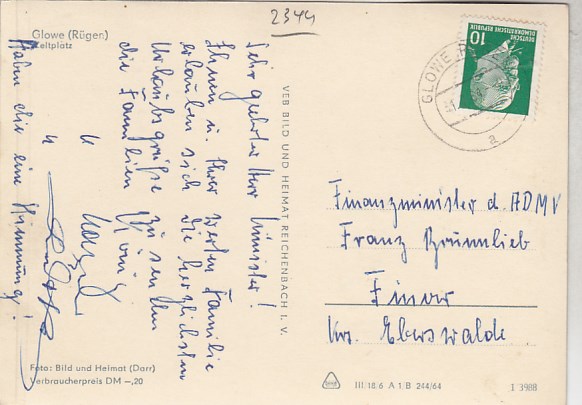 2344
Glowe (Rügen)
Zeltplatz
Sehr geehrter Herr Minister!
Ihnen u. Ihrer werten Familie
erlauben sich die herzlichsten
Urlaubsgrüße zu senden
die Familien
"
"
Haben die eine Stimmung!
VEB BILD UND HEIMAT REICHENBACH I. V.
Foto: Bild und Heimat (Darr)
Verbraucherpreis DM –,20
GLOWE
a
10
DEUTSCHE
DEMOKRATISCHE REPUBLIK
Finanzminister d. ADMV
Franz Brümlieb
Finow
Krs. Eberswalde
III/18/6 A 1 B 244/64
1 3988